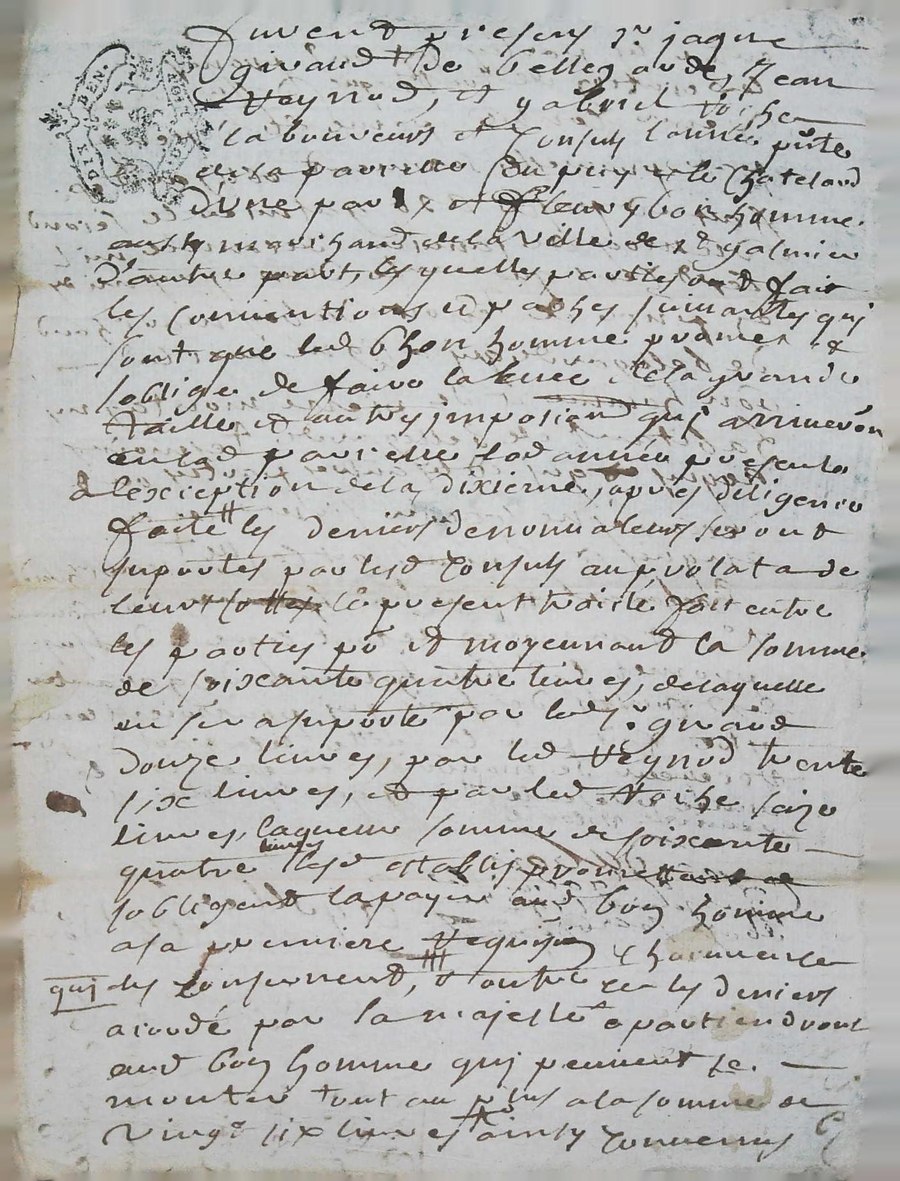 DIX DEN.
furent presens Sr jaque
giraud de bellegarde, Jean
Veynod, et gabriel
laboureurs et Consuls lannée pnte
de la parroisse du puy le Chatelard
Dune part, et fleury bon homme
marchand de la Ville de st galmier
D'autre part, lesquelles parties ont fait
les Conventions et paches suivantes qui
sont que led bhon homme promet et
soblige de faire la levée de la grande
taille et autres imposiōns qui ariveron
en lad parroisse lad année presente
a lexception de la dixieme, apres diligence
faitte les deniers seront
suportes par lesd Consuls au prolata de
leurs cottes le present traité fait entre
les parties pū et moyennand la somme
de soixante quatre livres, de laquelle
en sera suporté par led Sr giraud
Douze livres, par led Veynod trente
six livres, et par led saize
livres, laquelle somme de soixante
quatre livres lesd establis promettent et
sobligent la payer aud bon homme
a la premiere requisõn
qui les Concernent, et outre ce les deniers
acordé par la majesté apartiendront
aud bon homme qui peuvent se
monter tout au plus a la somme de
Vingt six livres ainsy Convenus